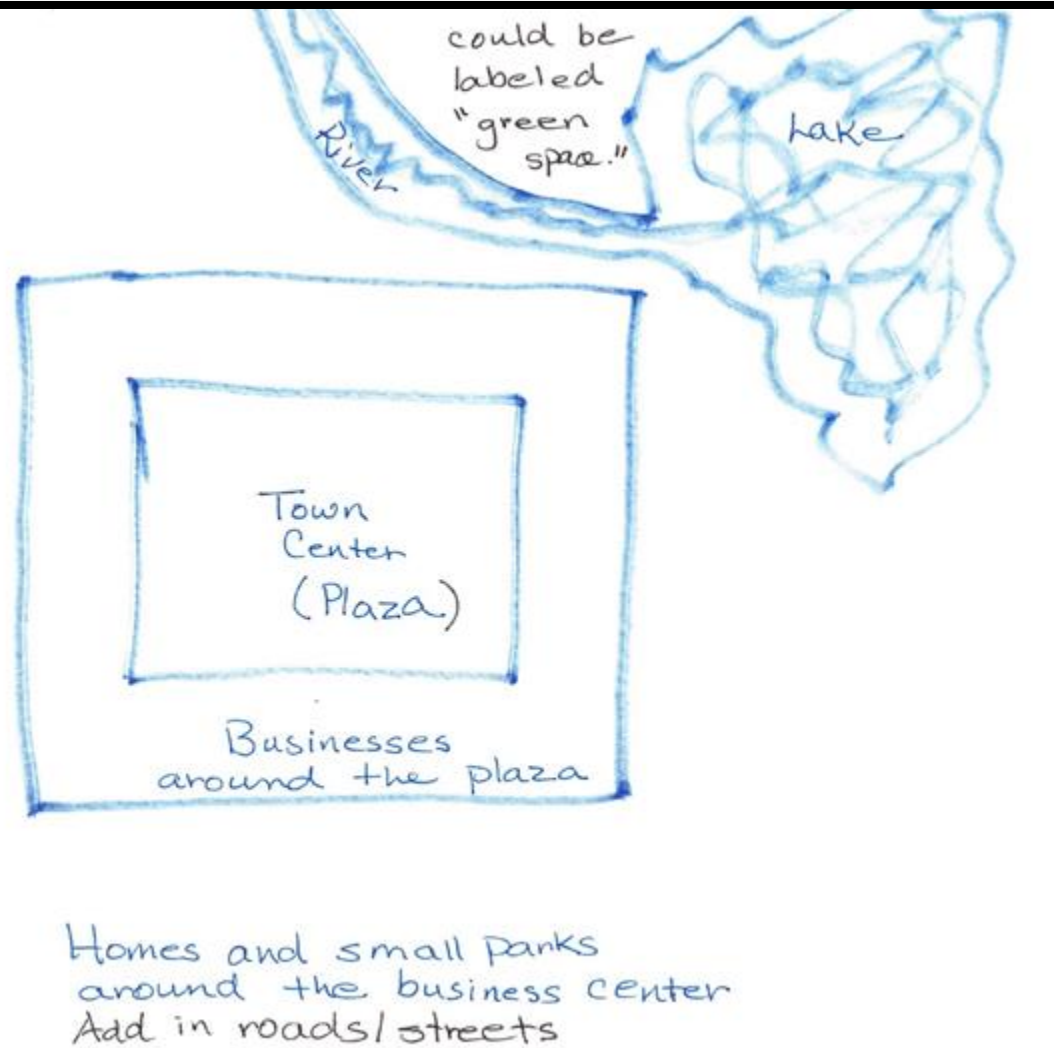 could be
labeled
"green
space."
River
Lake
Town
Center
(Plaza)
Businesses
around the plaza
Homes and small parks
around the business center
Add in roads/streets